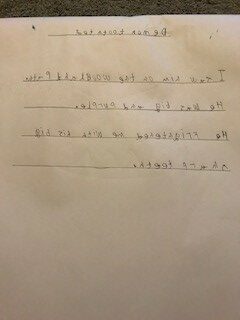 Demon
I saw him on the woodland Path.
He was big and purple.
He Frightened me with his big
sharp teeth.